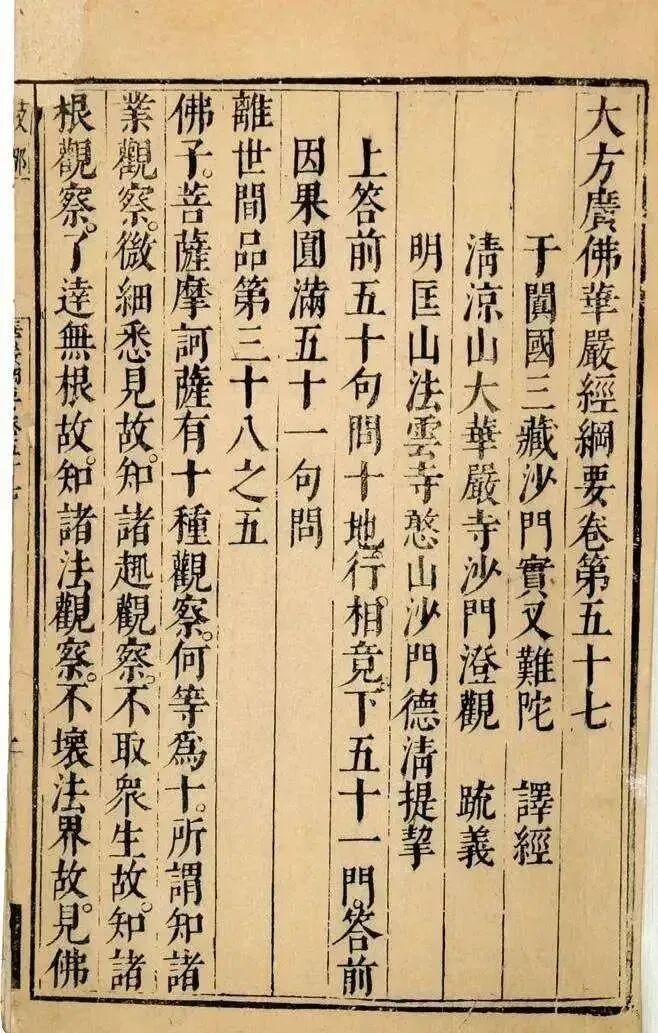 大方廣佛華嚴經綱要卷第五十七
于闐國三藏沙門實叉難陀 譯經
清涼山大華嚴寺沙門澄觀 疏義
明匡山法雲寺憨山沙門德清提挈
上答前五十句問十地行相竟。下五十一門。答前
因果圓滿五十一句問
離世間品第三十八之五
佛子。菩薩摩訶薩有十種觀察。何等爲十。所謂知諸
業觀察。微細悉見故。知諸趣觀察。不取衆生故。知諸
根觀察。了達無根故。知諸法觀察。不壞法界故。見佛